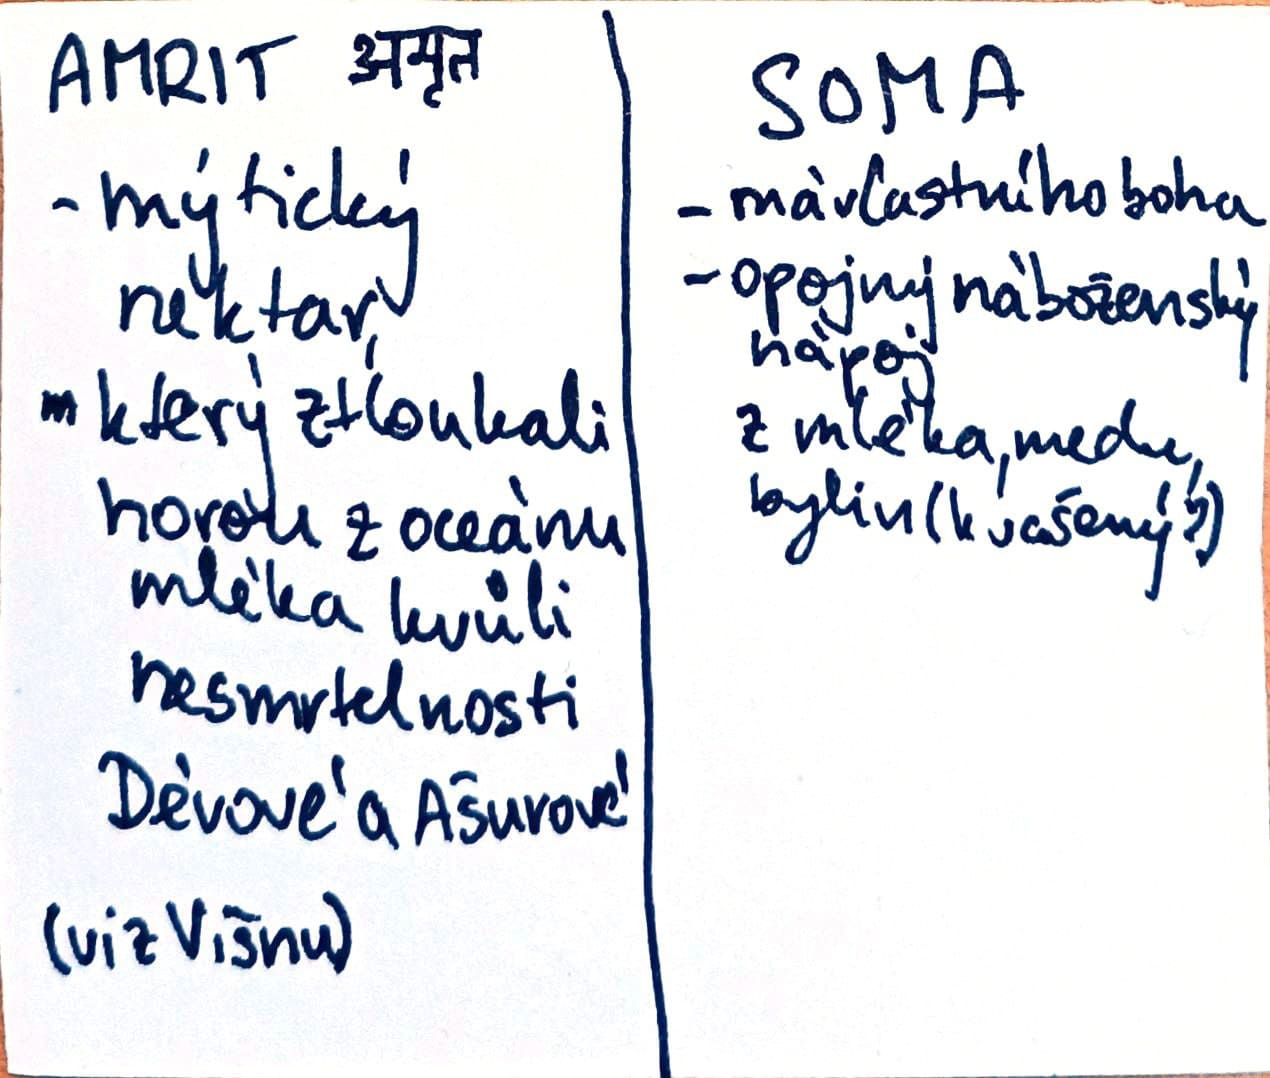 AMRIT अमृत
- mýtický
nektar,
který ztloukali
horou z oceánu
mléka kvůli
nesmrtelnosti
Dévové a Ašurové
(viz Višnu)
SOMA
- má vlastního boha
- opojný náboženský
nápoj
z mléka, medu,
bylin (kvašený?)